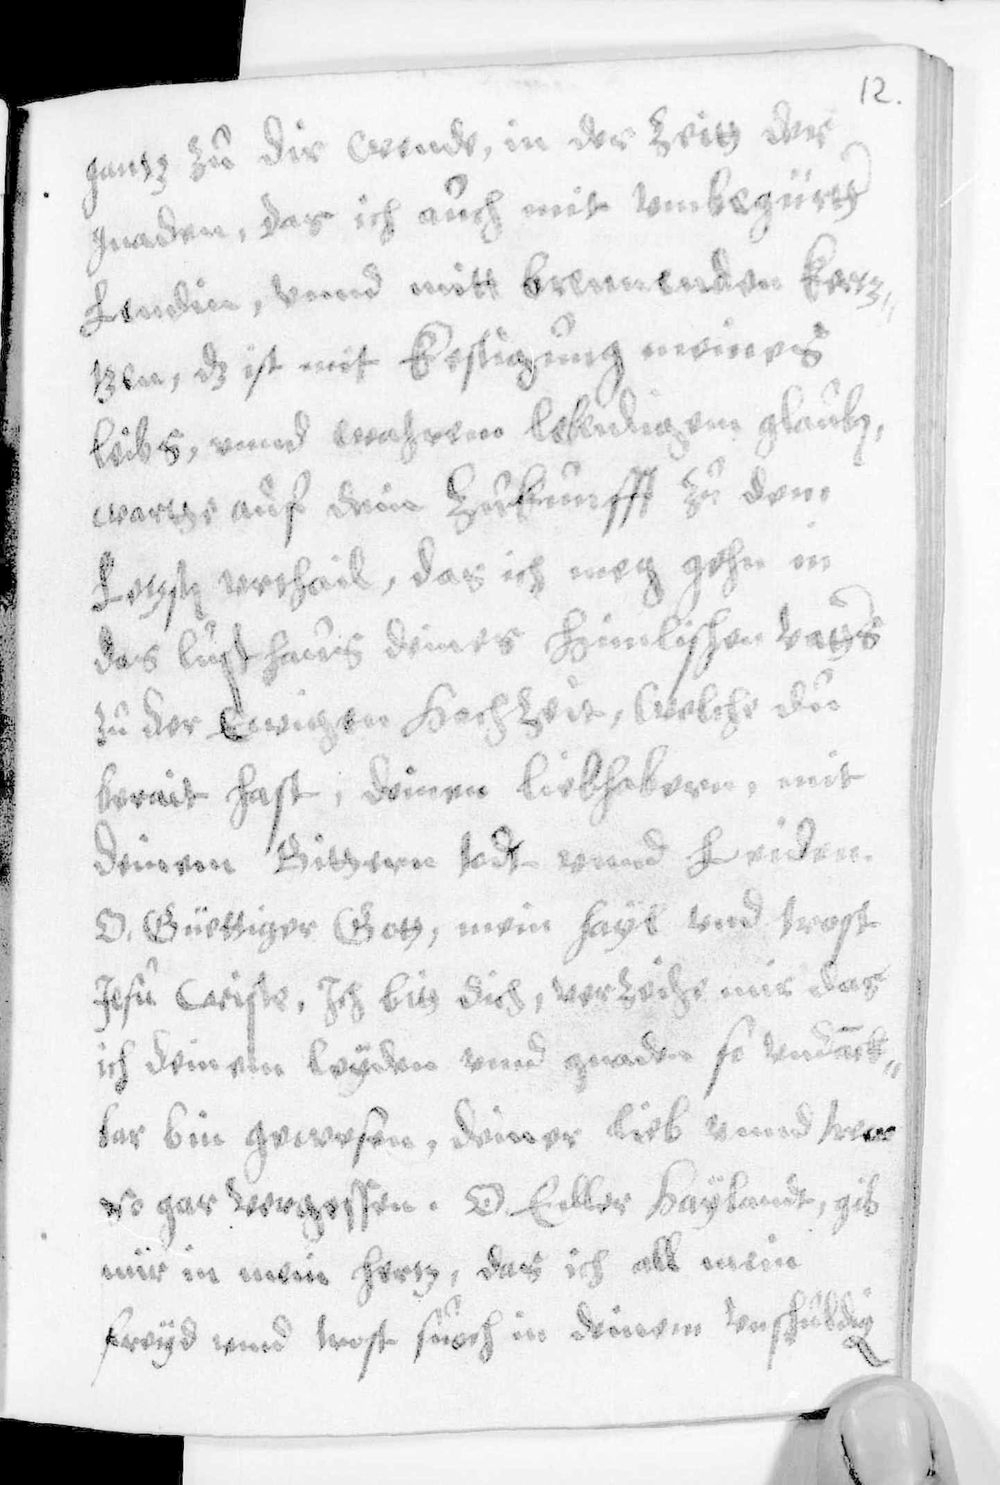 12.
gantz zů dir wende, in der Zeitt der
gnaden, das ich aůch mit vmbegürtt
Lenden, vnnd mitt brennenden Kertz„
tzen, dz ist mit Kestigůng meines
leibs, vnnd wahrem lebendigem glaůb,
wartte aůf dein Zůkůnfft zů dem
Letzst vrthail, das ich meg gehn in
das lůsthaůs deines Himlischen vatters
zů der Ewigen Hochzeit, welche dů
berait hast, deinen liebhabern, mit
deinem Bittern todt vnnd Leiden.
O, Güettiger Gott, mein hayl vnd trost
Jesů Criste, Ich bitt dich, verzeihe mir das
ich deinem leyden vnnd gnaden so vndäck„
bar bin gewesen, deiner lieb vnnd trew
so gar vergessen. O Edler Haylandt, gib
mir in mein hertz, das ich all mein
freyd vnnd trost sůech in deinem vnschůldig